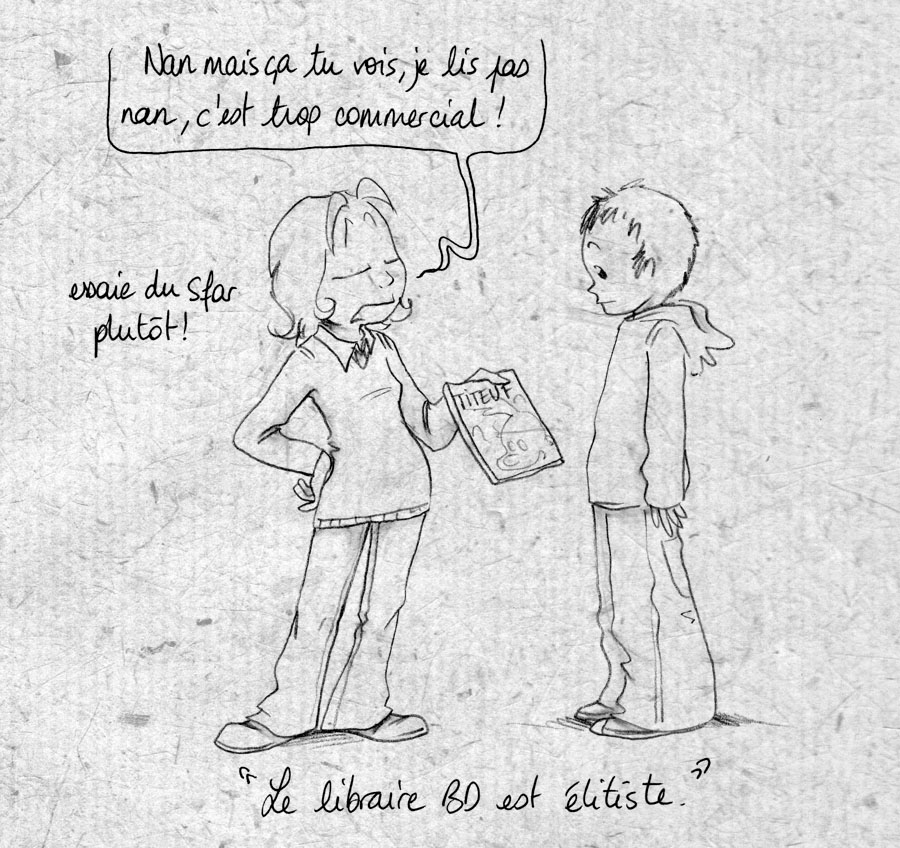 Nan mais ça tu vois, je lis pas
nan, c'est trop commercial !
essaie du Sfar
plutôt !
TITEUF
"Le libraire BD est élitiste."